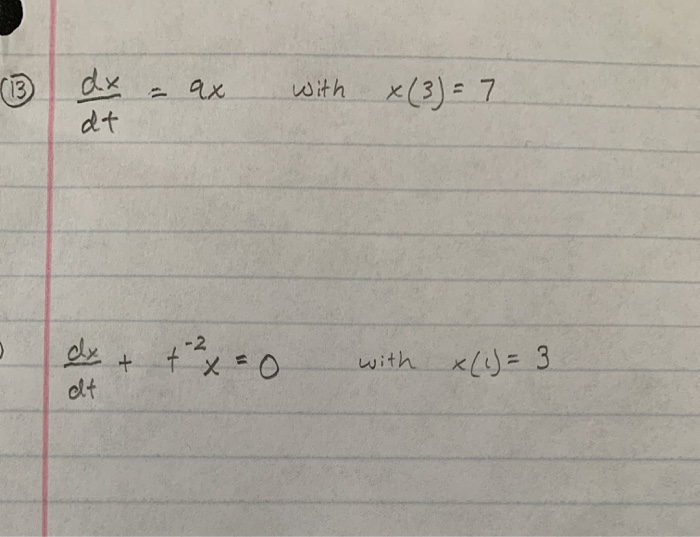 (13) dx/dt = 9x with x(3) = 7
dx/dt + t^-2 x = 0 with x(1) = 3